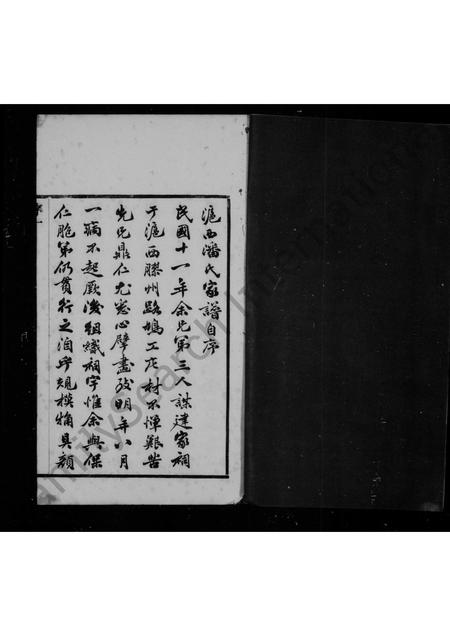 滬西潘氏家譜自序
民國十一年余兄第三人謀建家祠
于滬西膠州路鳩工庀材不憚艱苦
先兄鼎仁尤悉心擘畫孜明年八月
一病不起厥後組織祠宇惟余與保
仁胞第仍貫行之洎乎規模觕具顏
FamilySearch International